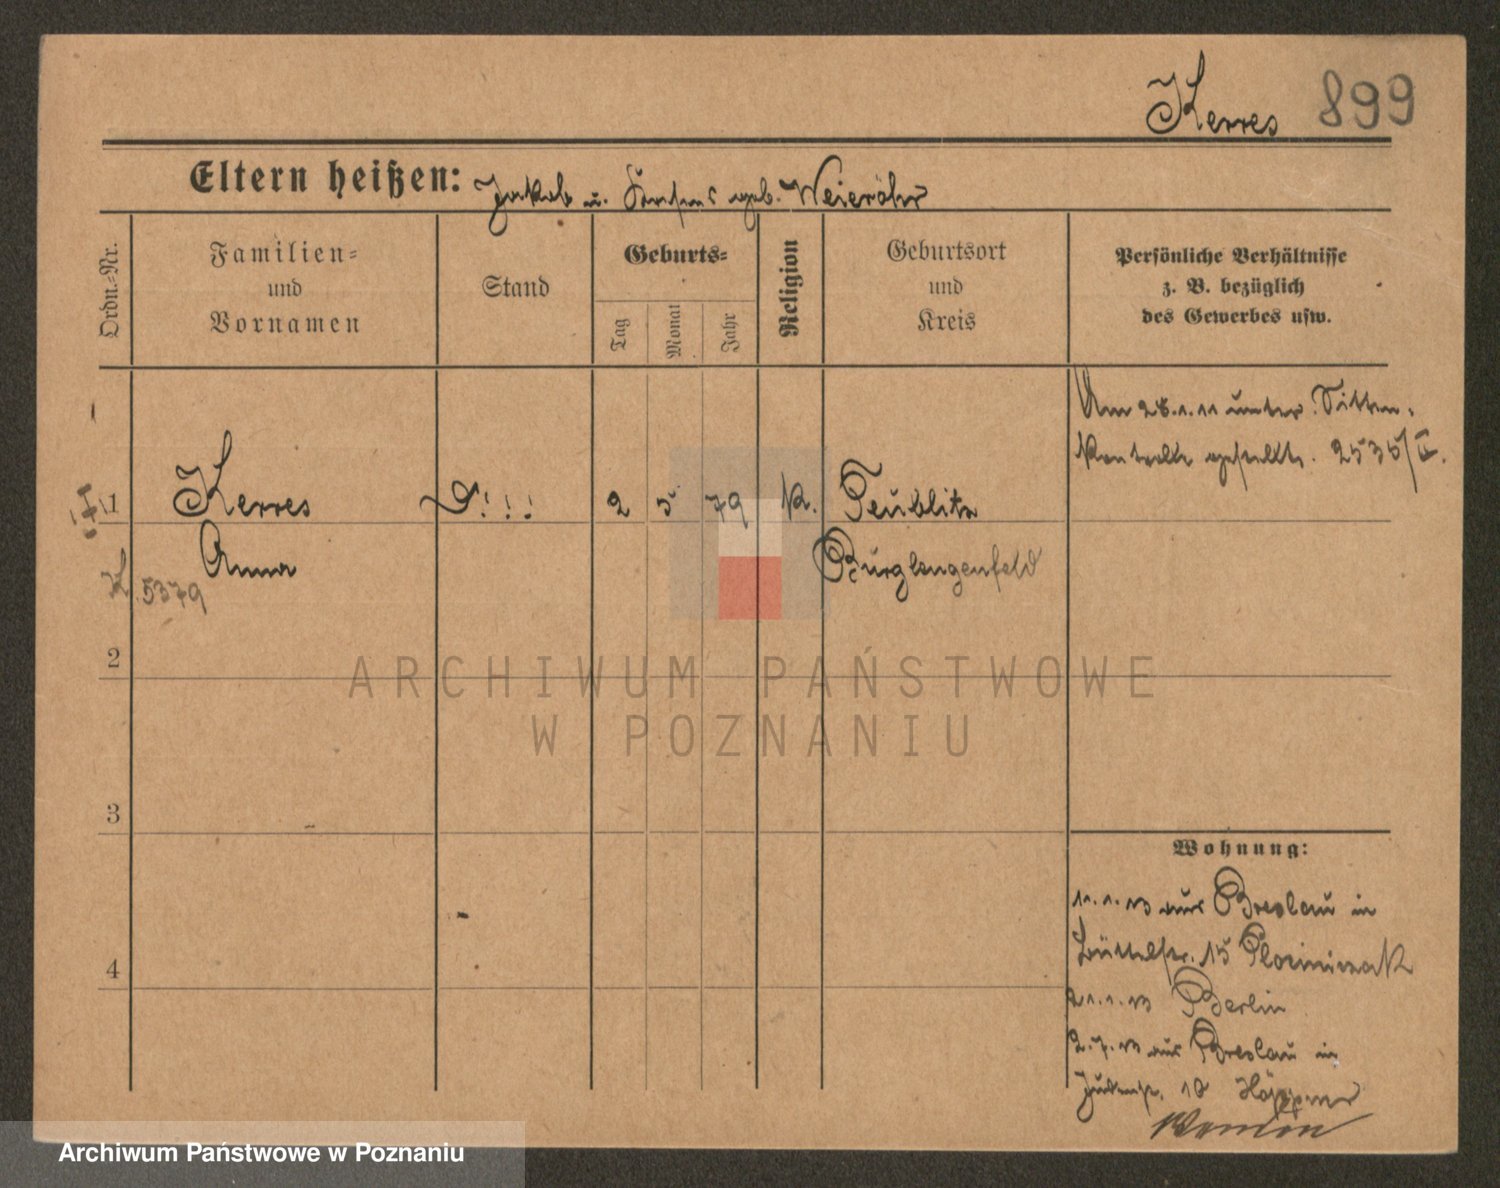 Kerres 899
Eltern heißen: Jakob u. geb. Weieröhr
Ordn.=Nr.
Familien=
und
Vornamen
Stand
Geburts=
Tag
Monat
Jahr
Religion
Geburtsort
und
Kreis
Persönliche Verhältnisse
z. B. bezüglich
des Gewerbes usw.
Am 28.1.11 unter Sitten-
Kontrolle gestellt. 2535/II.
1 Kerres D!!! 2 5 79 K. Teublitz
Anna Burglengenfeld
K. 5379
2
3
4
Wohnung:
11.1.13 aus Breslau in
Büttelstr. 15
21.1.13 Berlin
2.7.13 aus Breslau in
Judenstr. 10 Höppner
ARCHIWUM PAŃSTWOWE
W POZNANIU
Archiwum Państwowe w Poznaniu